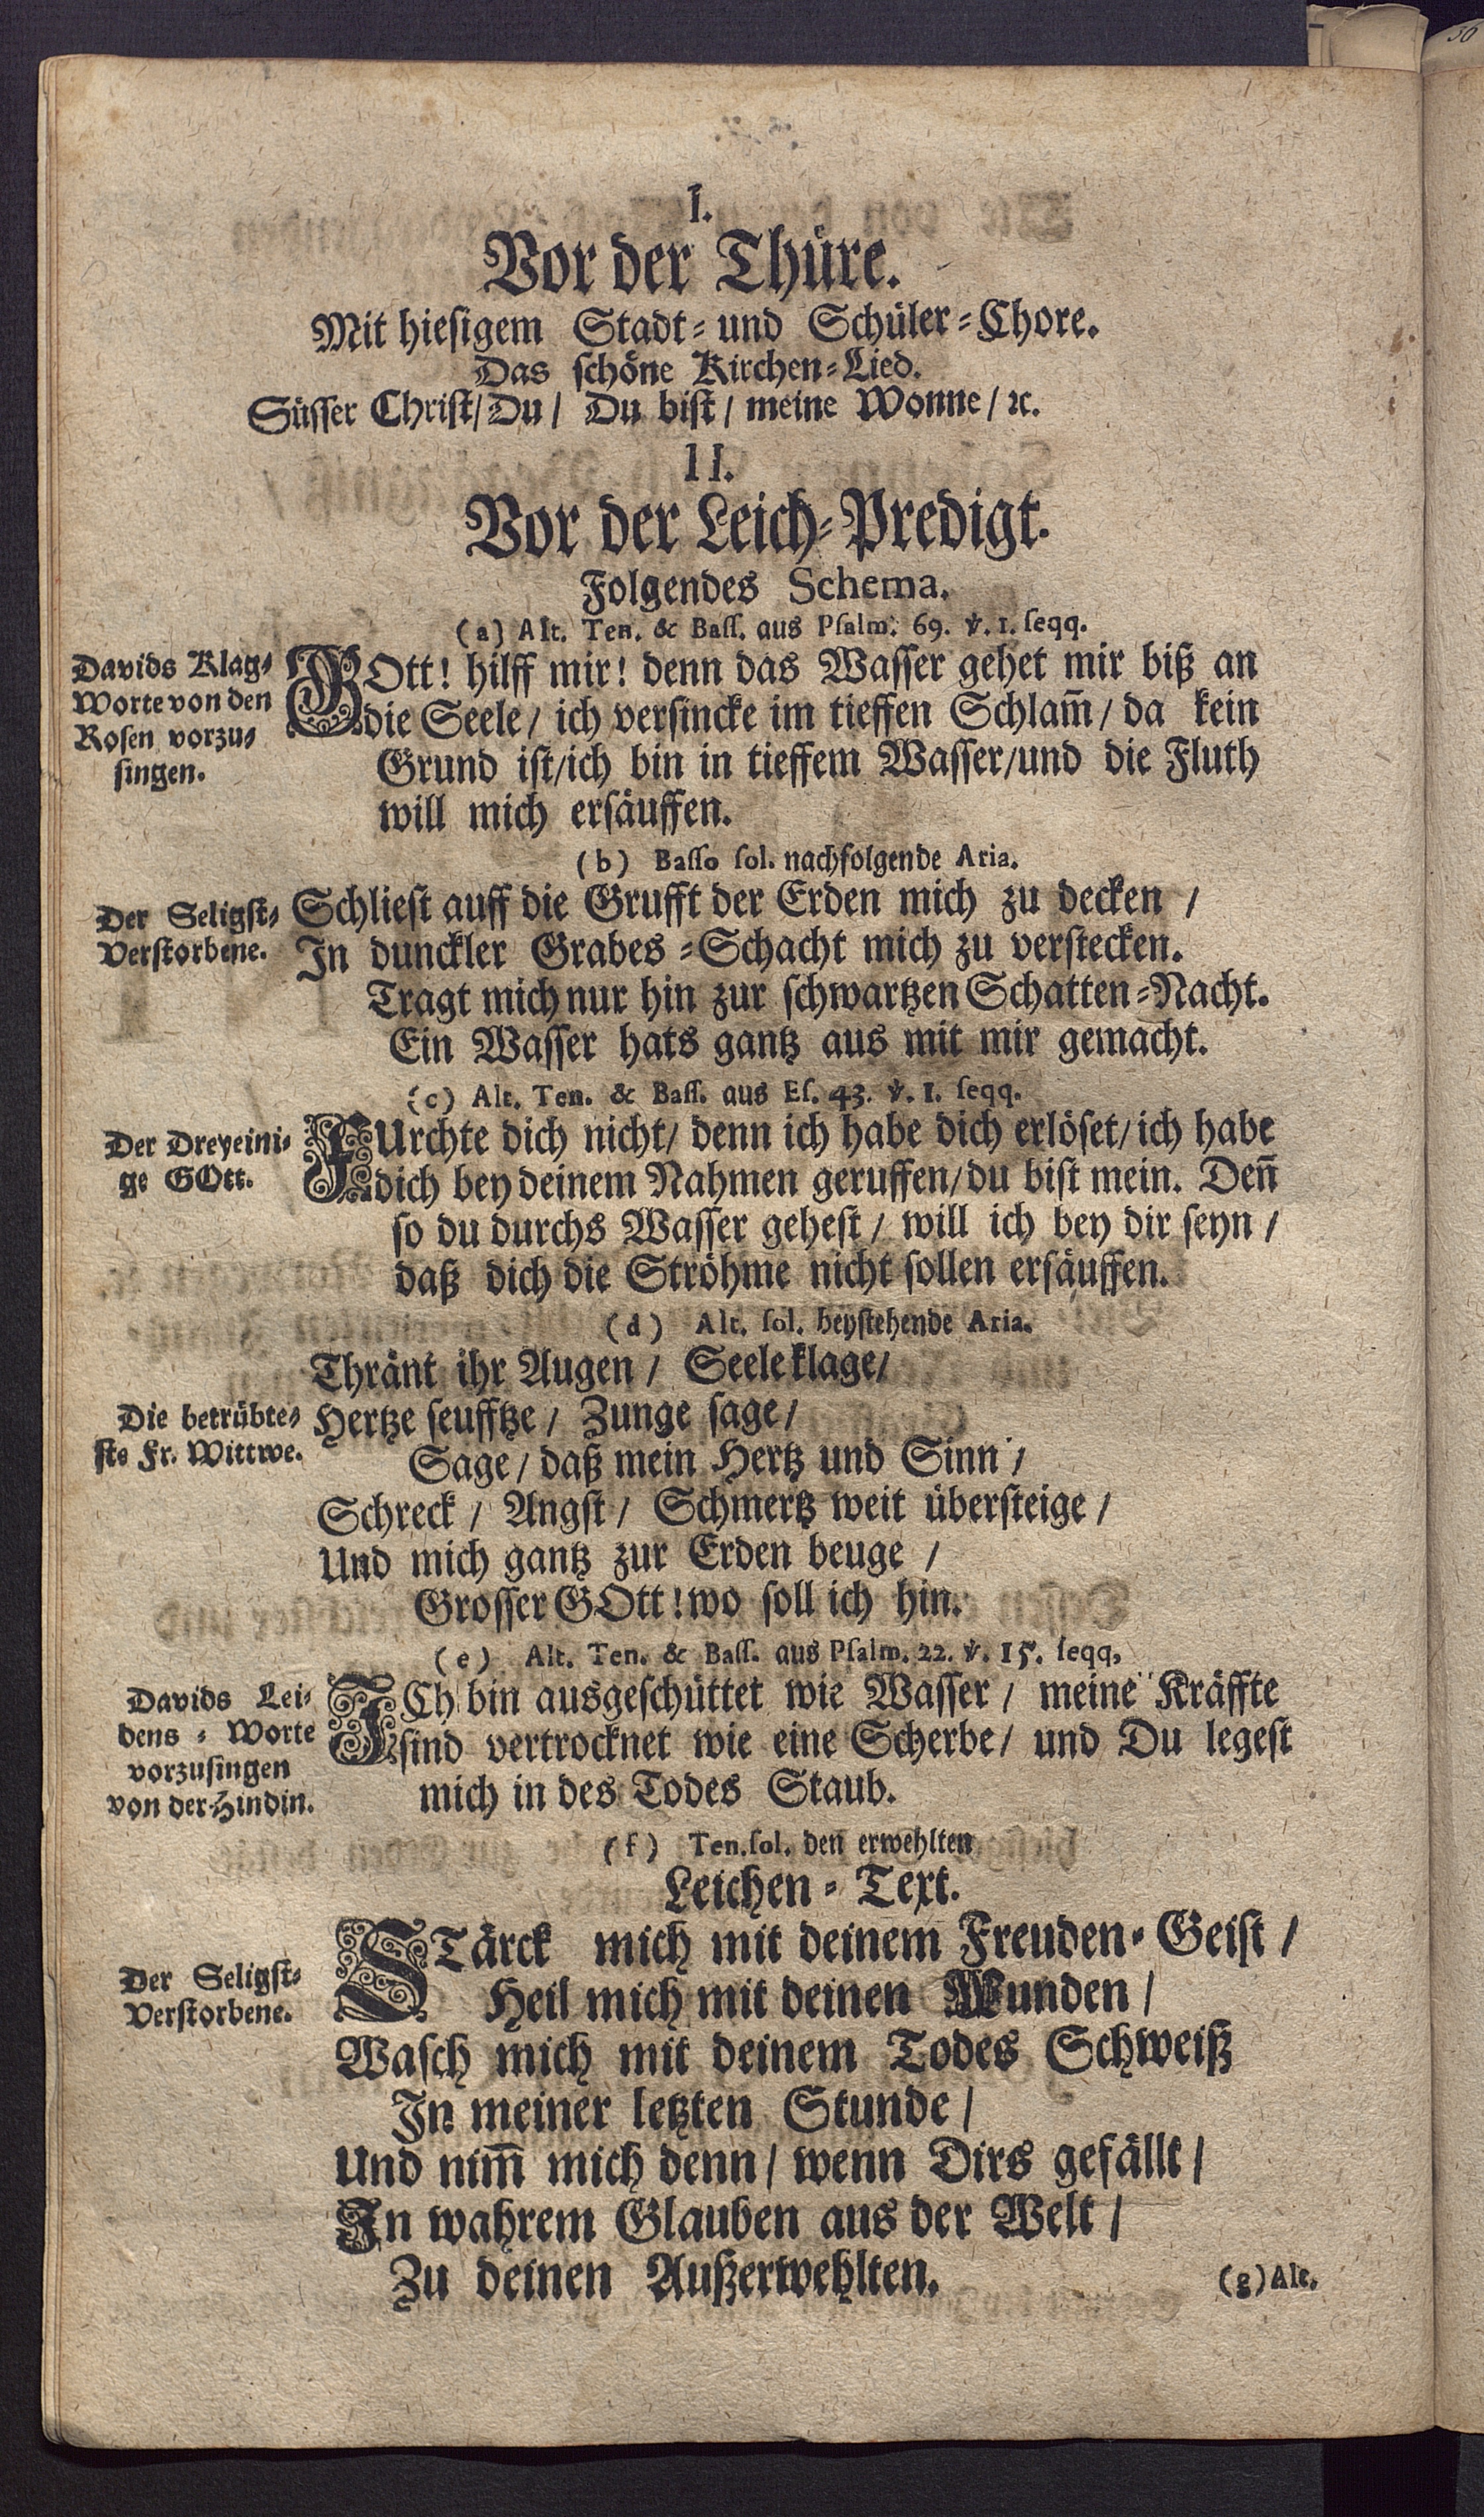 I.
Vor der Thüre.
Mit hiesigem Stadt- und Schüler-Chore.
Das schöne Kirchen-Lied.
Süsser Christ/Du/ Du bist/ meine Wonne/ ꝛc.
II.
Vor der Leich-Predigt.
Folgendes Schema.
(a) Alt. Ten. & Bass. aus Psalm. 69. ℣. 1. seqq.
Davids Klag-
Worte von den
Rosen vorzu-
singen.
GOtt! hilff mir! denn das Wasser gehet mir biß an
die Seele/ ich versincke im tieffen Schlam̄/ da kein
Grund ist/ich bin in tieffem Wasser/und die Fluth
will mich ersäuffen.
(b) Basso sol. nachfolgende Aria.
Der Seligst-
Verstorbene.
Schliest auff die Grufft der Erden mich zu decken /
In dunckler Grabes-Schacht mich zu verstecken.
Tragt mich nur hin zur schwartzen Schatten-Nacht.
Ein Wasser hats gantz aus mit mir gemacht.
(c) Alt. Ten. & Bass. aus Es. 43. ℣. 1. seqq.
Der Dreyeini-
ge GOtt.
FUrchte dich nicht/ denn ich habe dich erlöset/ ich habe
dich bey deinem Nahmen geruffen/du bist mein. Den̄
so du durchs Wasser gehest/ will ich bey dir seyn/
daß dich die Ströhme nicht sollen ersäuffen.
(d) Alt. sol. beystehende Aria.
Thränt ihr Augen / Seele klage/
Die betrübte-
ste Fr. Wittwe.
Hertze seufftze/ Zunge sage/
Sage/ daß mein Hertz und Sinn /
Schreck / Angst/ Schmertz weit übersteige /
Und mich gantz zur Erden beuge /
Grosser GOtt! wo soll ich hin.
(e) Alt. Ten. & Bass. aus Psalm. 22. ℣. 15. seqq,
Davids Lei-
dens - Worte
vorzusingen
von der Hindin.
ICh bin ausgeschüttet wie Wasser / meine Kräffte
sind vertrocknet wie eine Scherbe/ und Du legest
mich in des Todes Staub.
(f) Ten. sol. den̄ erwehlten
Leichen - Text.
Der Seligst-
Verstorbene.
STärck mich mit deinem Freuden-Geist /
Heil mich mit deinen Wunden /
Wasch mich mit deinem Todes Schweiß
In meiner letzten Stunde /
Und nim̄ mich denn/ wenn Dirs gefällt /
In wahrem Glauben aus der Welt /
Zu deinen Außerwehlten.
(g) Alt.